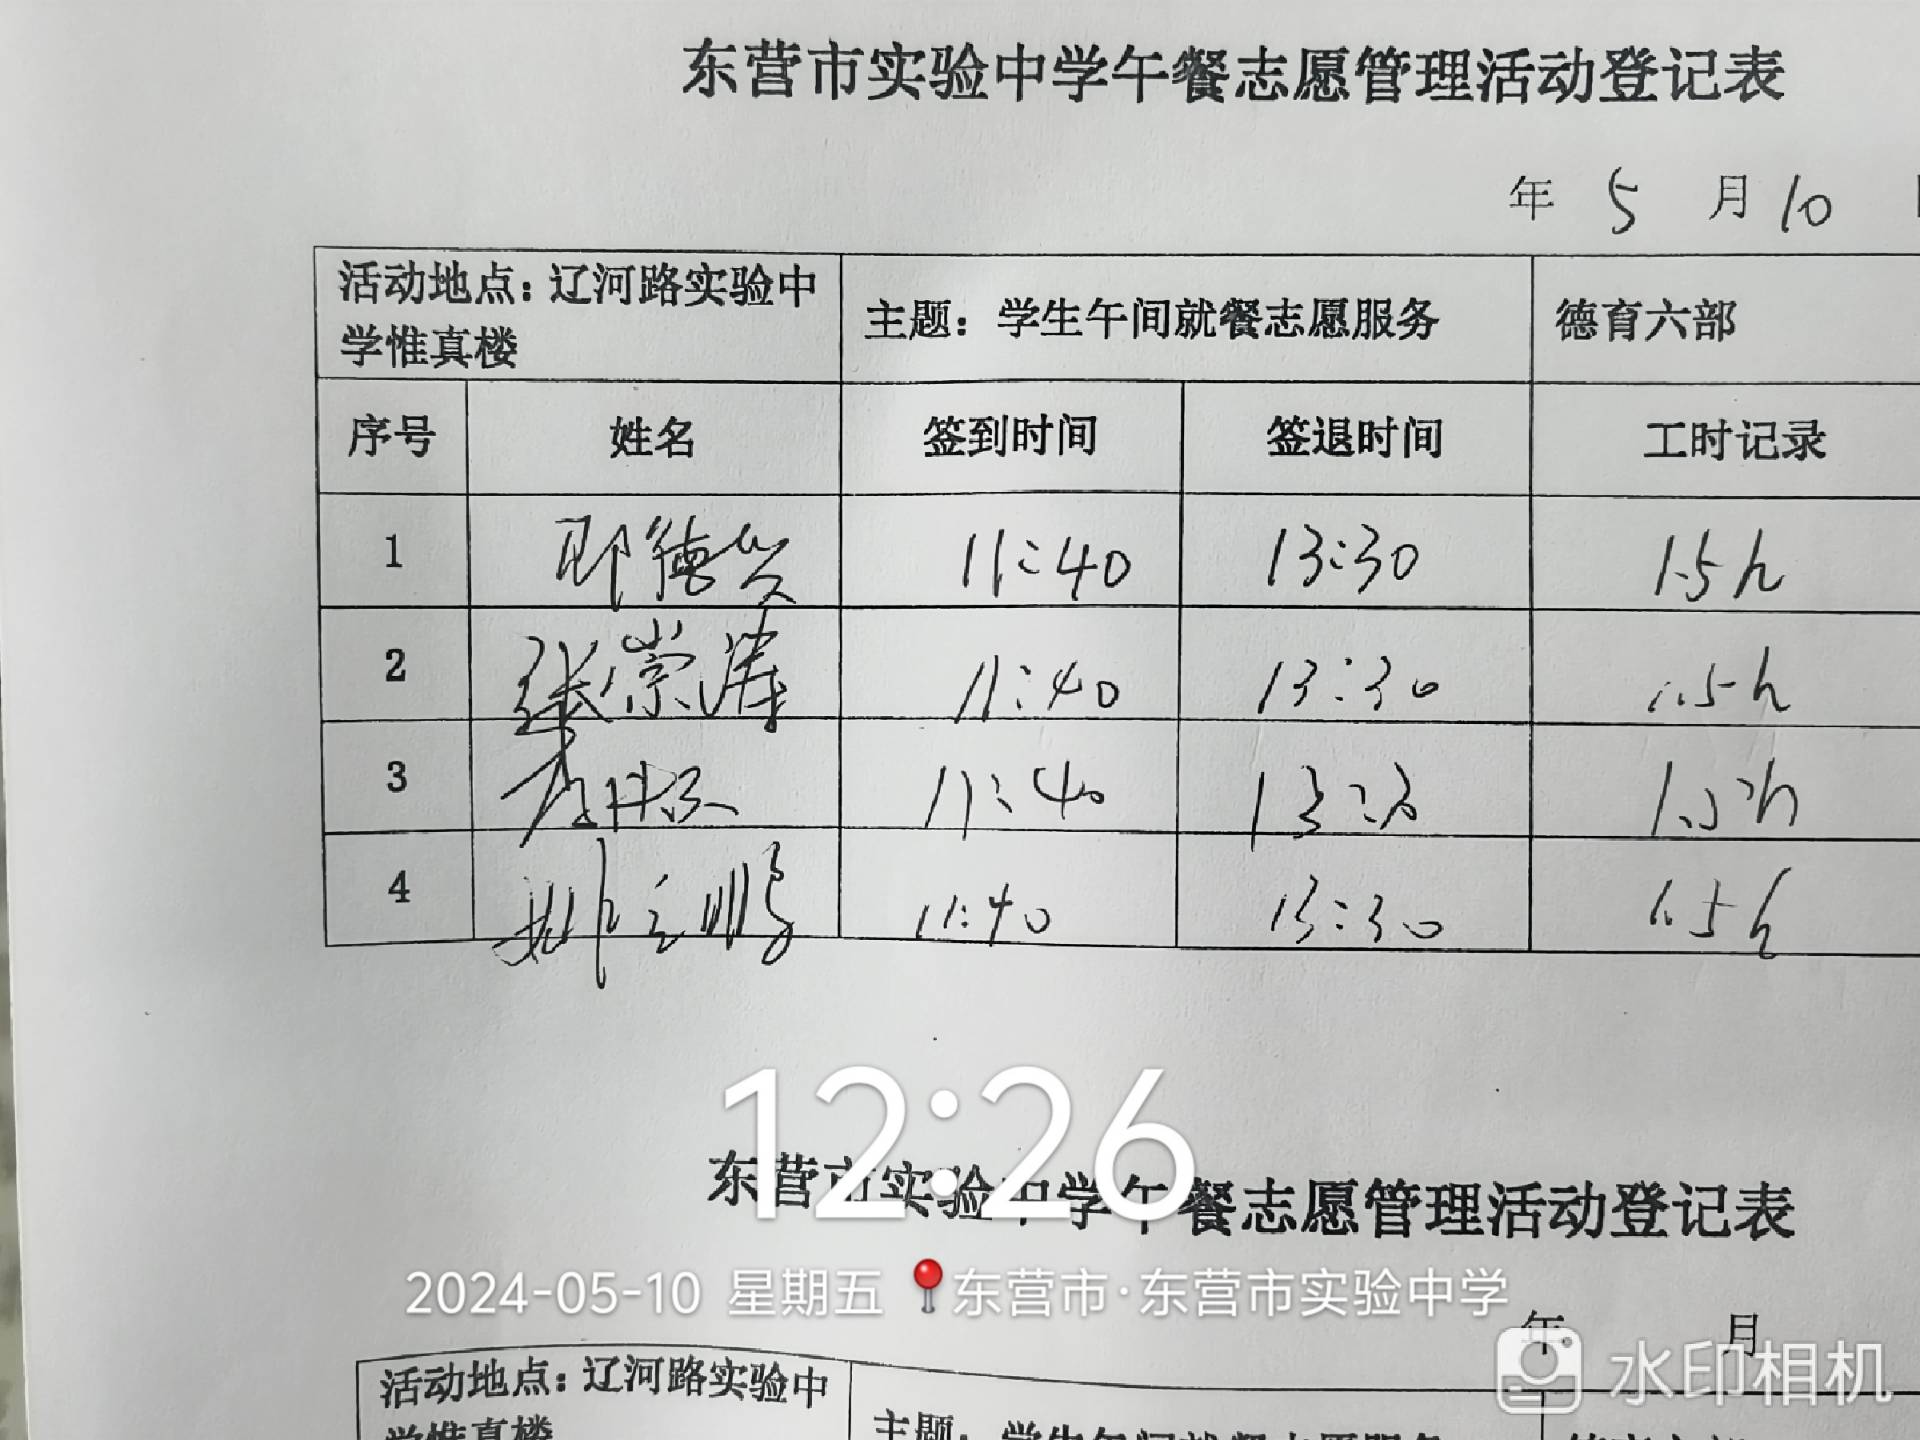 东营市实验中学午餐志愿管理活动登记表
年 5 月 10
活动地点：辽河路实验中学惟真楼 主题：学生午间就餐志愿服务 德育六部
序号 姓名 签到时间 签退时间 工时记录
1 11:40 13:30 1.5h
2 张崇涛 11:40 13:30 1.5h
3 11:40 13:30 1.5h
4 姚立鹏 11:40 13:30 1.5h
12:26
东营市实验中学午餐志愿管理活动登记表
2024-05-10 星期五 东营市·东营市实验中学
年 月
水印相机
活动地点：辽河路实验中
学惟真楼 主题：学生午间就餐志愿服务